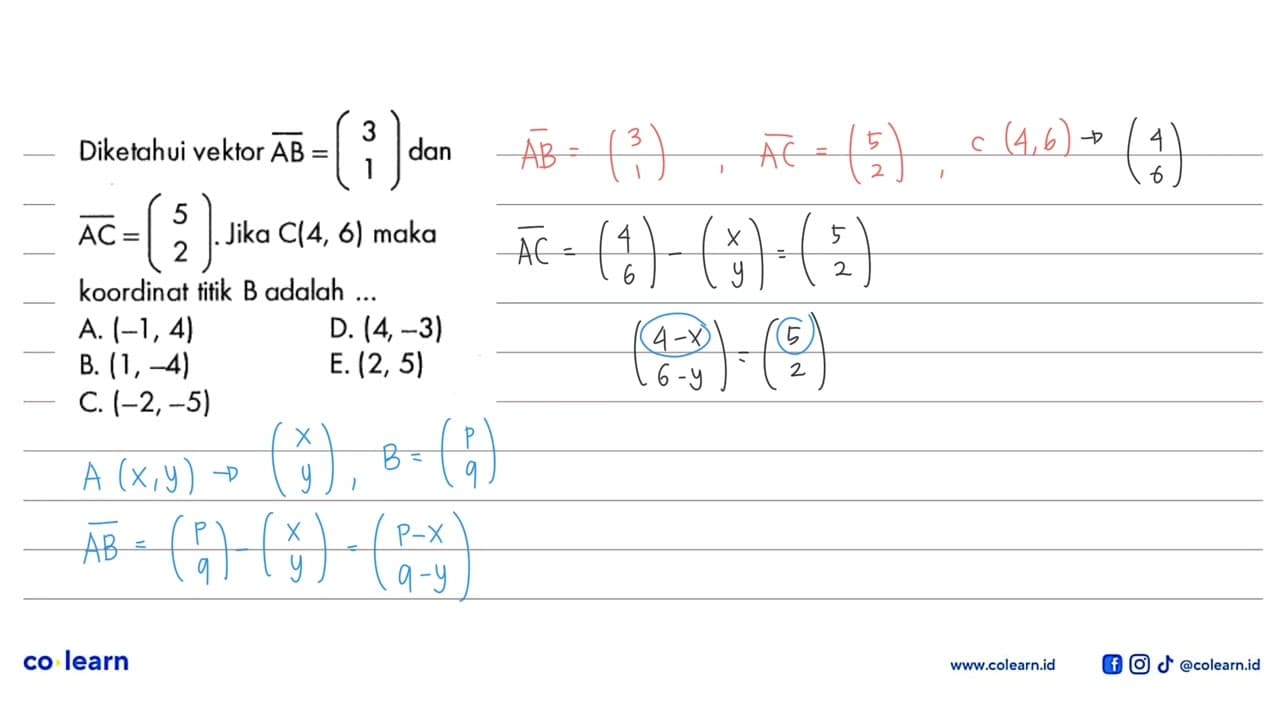 Diketahui vektor AB = (3 1) dan
AC = (5 2). Jika C(4, 6) maka
koordinat titik B adalah ...
A. (–1, 4) D. (4, –3)
B. (1, –4) E. (2, 5)
C. (–2, –5)
AB = (3 1), AC = (5 2), C (4,6) → (4 6)
AC = (4 6) - (x y) = (5 2)
(4-x 6-y) = (5 2)
A (x,y) → (x y), B = (p q)
AB = (p q) - (x y) = (p-x q-y)
co learn
www.colearn.id
@colearn.id